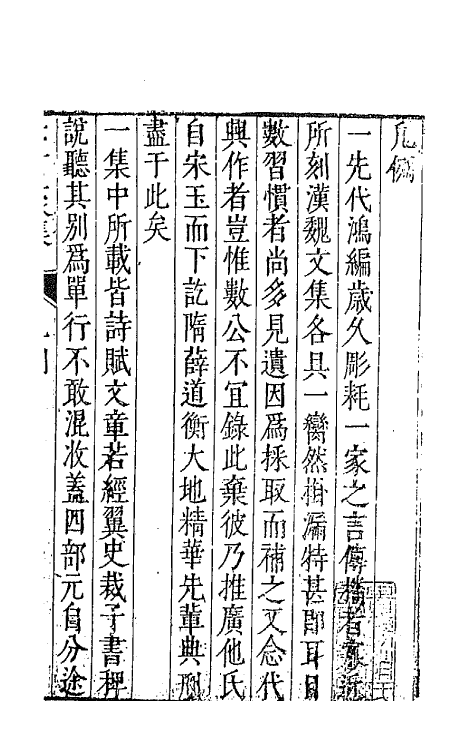 凡例
一先代鴻編歲久彫耗一家之言傳播者寡近
所刻漢魏文集各具一臠然掛漏特甚卽耳目
數習慣者尚多見遺因爲採取而補之又念代
興作者豈惟數公不宜錄此棄彼乃推廣他氏
自宋玉而下訖隋薛道衡大地精華先軰典刑
盡于此矣
一集中所載皆詩賦文章若經翼史裁子書稗
說聽其別爲單行不敢混收蓋四部元自分途